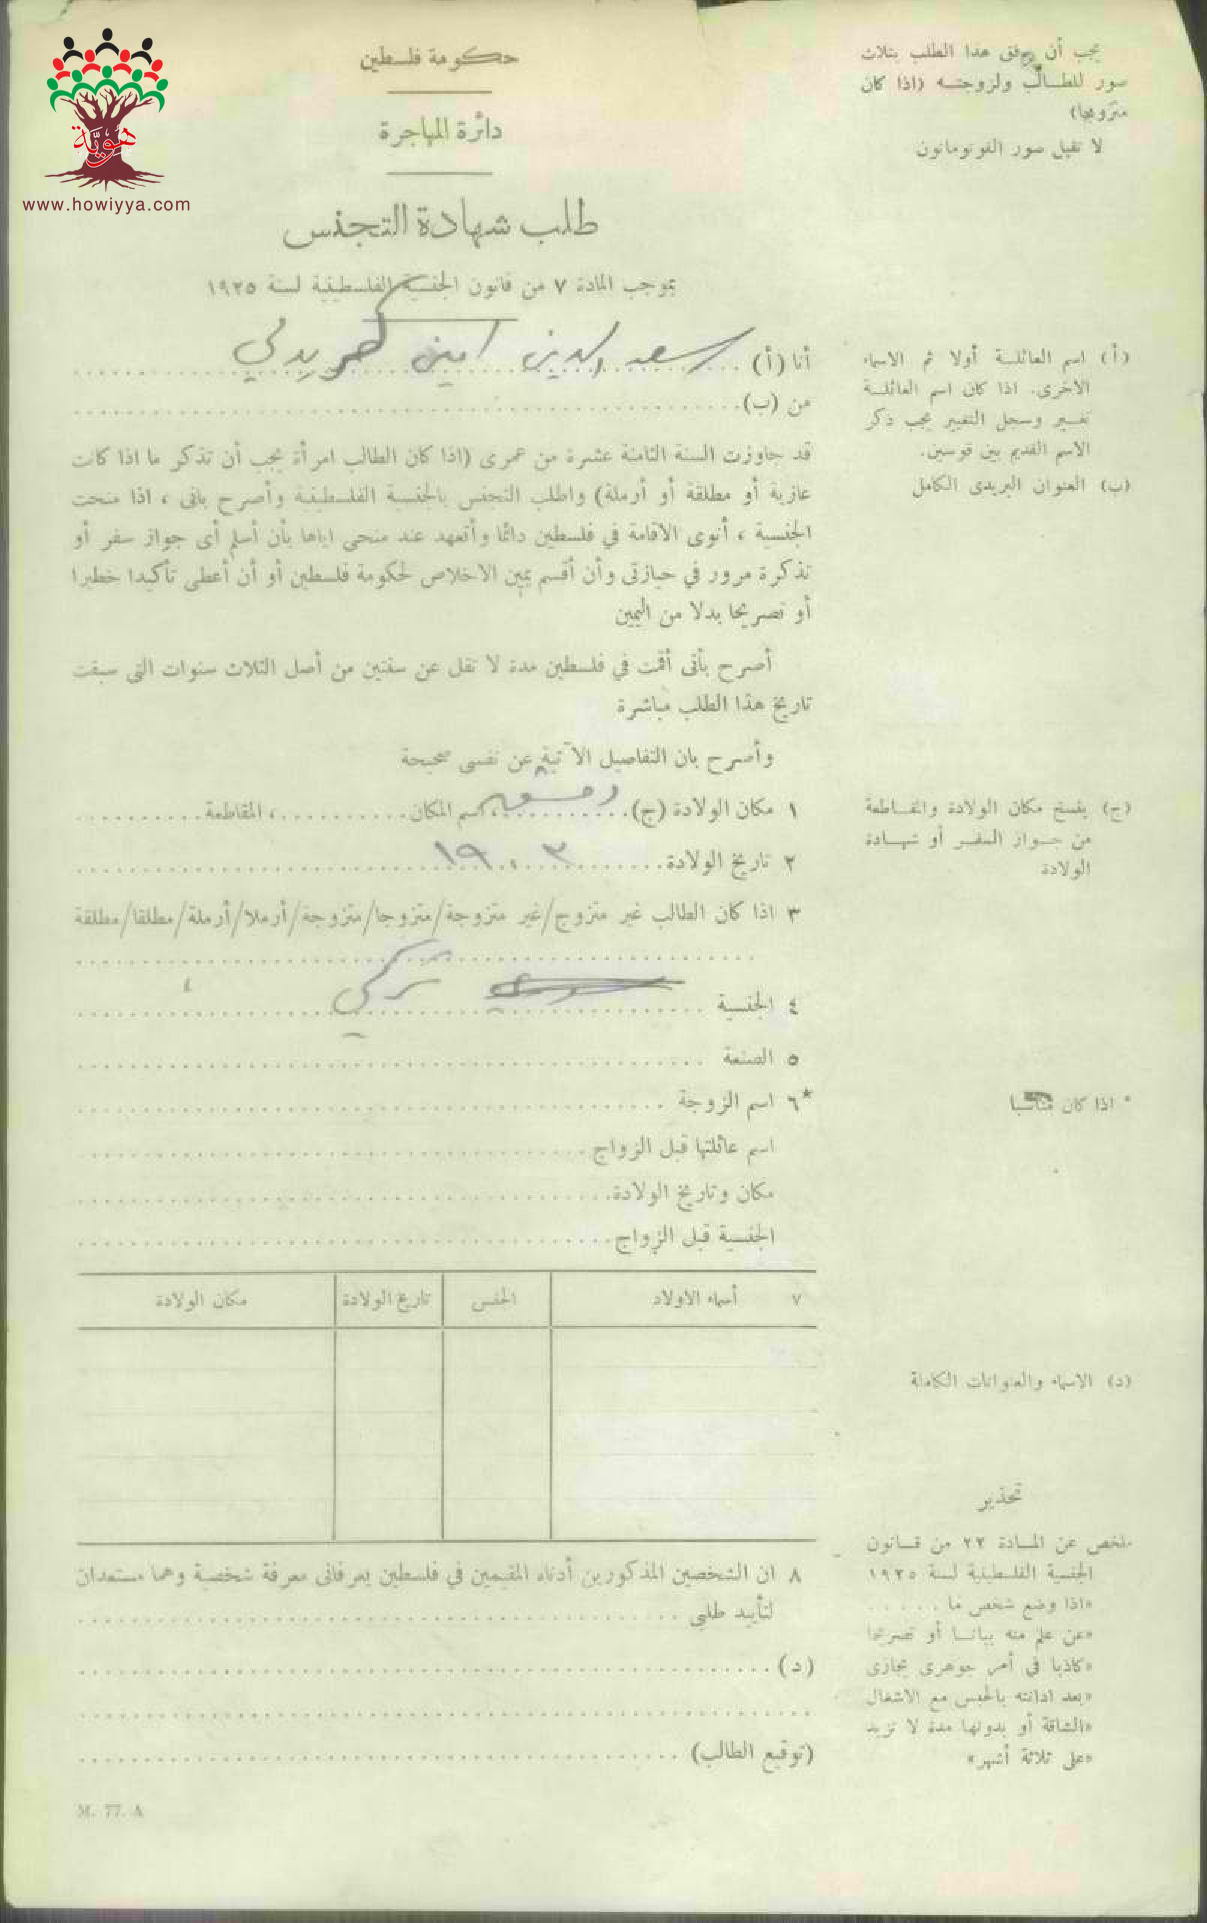 هوية
www.howiyya.com
يجب أن يرفق هذا الطلب بثلاث
صور للطالب ولزوجته (اذا كان
متزوجا)
لا تقبل صور الفوتوماتون
حكومة فلسطين
دائرة المهاجرة
طلب شهادة التجنس
بموجب المادة ٧ من قانون الجنسية الفلسطينية لسنة ١٩٢٥
أنا (أ) سعد الدين امين
من (ب)
(أ) اسم العائلة أولا ثم الاسماء
الاخرى. اذا كان اسم العائلة
تغير وسجل التغيير يجب ذكر
الاسم القديم بين قوسين.
(ب) العنوان البريدى الكامل
قد جاوزت السنة الثامنة عشرة من عمرى (اذا كان الطالب امرأة يجب أن تذكر ما اذا كانت
عازبة أو مطلقة أو أرملة) واطلب التجنس بالجنسية الفلسطينية وأصرح بانى ، اذا منحت
الجنسية ، أنوى الاقامة في فلسطين دائما وأتعهد عند منحى اياها بأن أسلم أى جواز سفر أو
تذكرة مرور في حيازتى وأن أقسم يمين الاخلاص لحكومة فلسطين أو أن أعطى تأكيدا خطيرا
أو تصريحا بدلا من اليمين
أصرح بأنى أقمت في فلسطين مدة لا تقل عن سنتين من أصل الثلاث سنوات التى سبقت
تاريخ هذا الطلب مباشرة
وأصرح بان التفاصيل الآتية عن نفسى صحيحة
١ مكان الولادة (ج) دمشق ، اسم المكان ، المقاطعة
(ج) ينسخ مكان الولادة والمقاطعة
من جواز السفر أو شهادة
الولادة
٢ تاريخ الولادة ١٩٠٣
٣ اذا كان الطالب غير متزوج/غير متزوجة/متزوجا/متزوجة/أرملا/أرملة/مطلقا/مطلقة
٤ الجنسية تركي
٥ الصنعة
*٦ اسم الزوجة
* اذا كان مناسبا
اسم عائلتها قبل الزواج
مكان وتاريخ الولادة
الجنسية قبل الزواج
٧ أسماء الاولاد الجنس تاريخ الولادة مكان الولادة
(د) الاسماء والعنوانات الكاملة
٨ ان الشخصين المذكورين أدناه المقيمين في فلسطين يعرفانى معرفة شخصية وهما مستعدان
لتأييد طلبى
(د)
(توقيع الطالب)
تحذير
ملخص عن المادة ٢٢ من قانون
الجنسية الفلسطينية لسنة ١٩٢٥
«اذا وضع شخص ما
«عن علم منه بيانا أو تصريحا
«كاذبا في أمر جوهرى يجازى
«بعد ادانته بالحبس مع الاشغال
«الشاقة أو بدونها مدة لا تزيد
«على ثلاثة أشهر»
M. 77. A